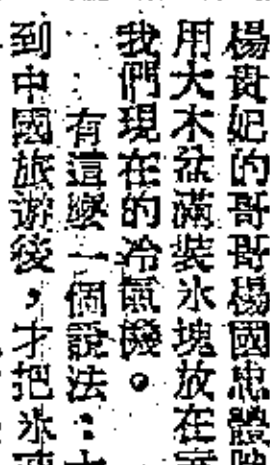 楊貴妃的哥哥楊國忠體
用大木盆滿裝冰塊放在
我們現在的冷氣機。
有這麼一個說法：
到中國旅游後，才把冰